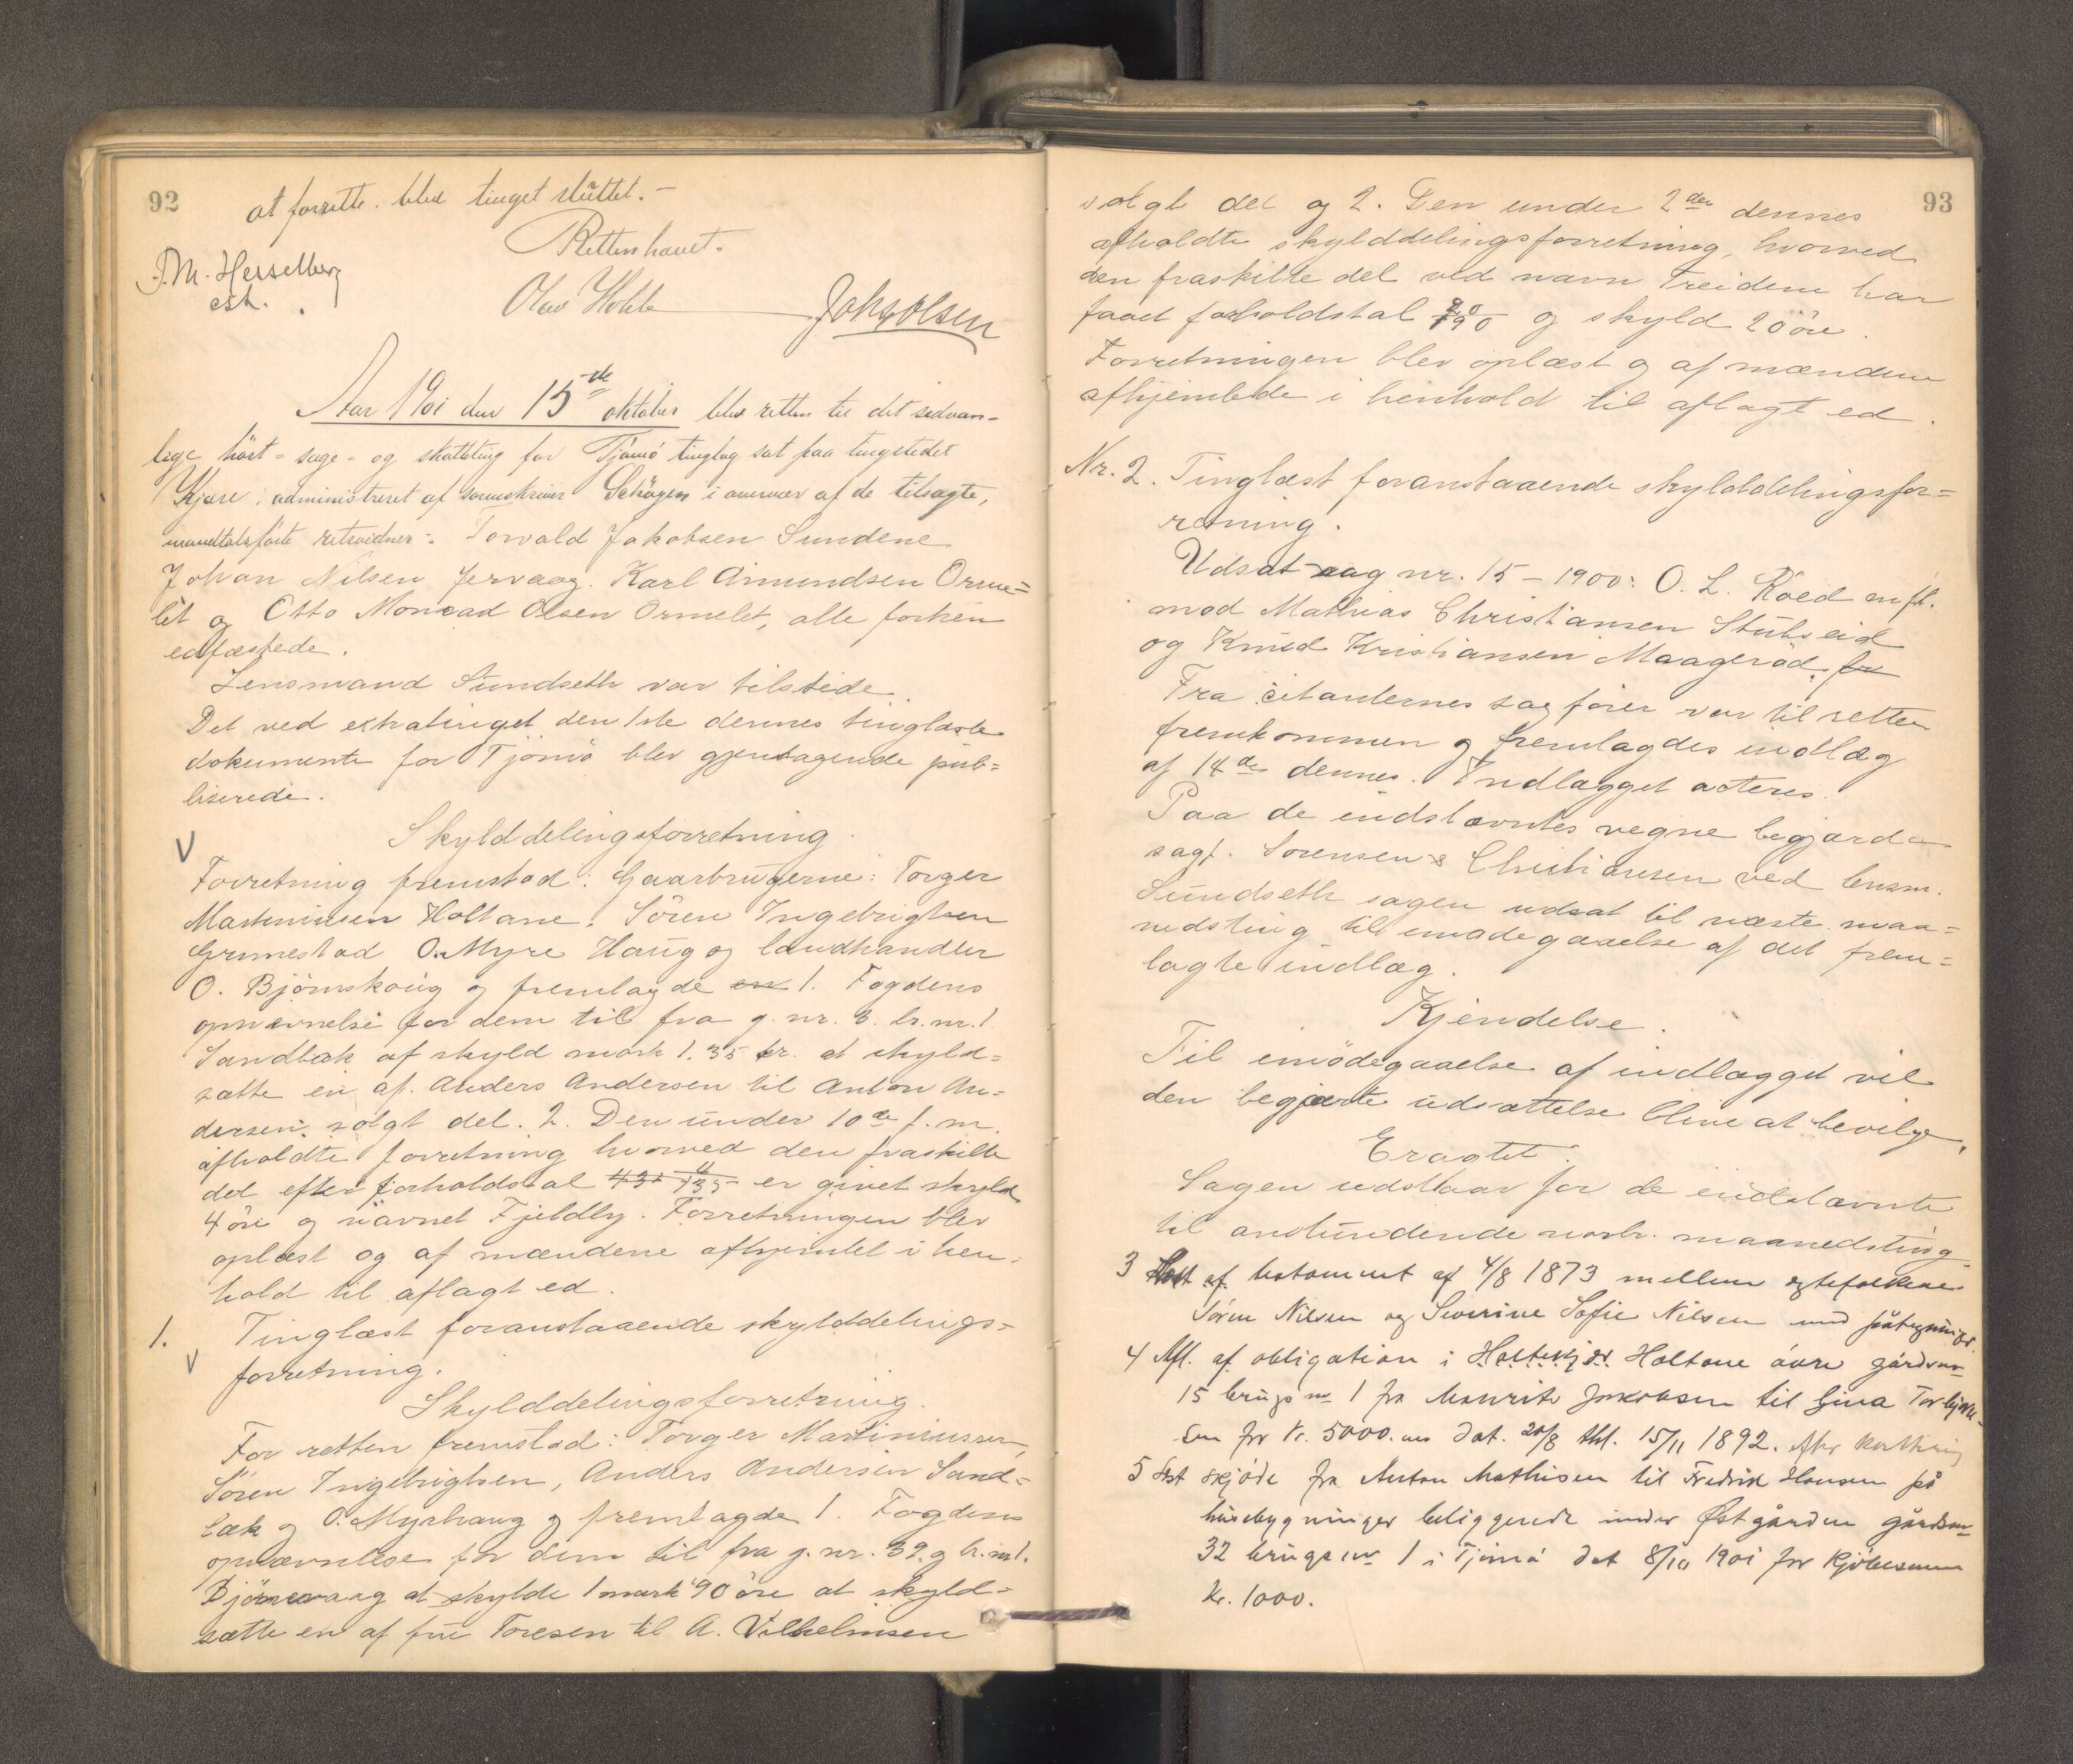 92
at forrette blev tinget sluttet.-
Retten hævet.
J. M. Hesselberg
est.
Olav Holth
Johs Olsen
Aar 1901 den 15de oktober blev retten til det sedvan-
lige høst- sage- og skatteting for Tjømø tinglag sat paa tingstedet
Kjære, administreret af sorenskriver Schøyen i overvær af de tilsagte,
mandtalsførte retsvidner: Torvald Jakobsen Sundene
Johan Nilsen Jervaag. Karl Amundsen Orme=
let og Otto Monrad Olsen Ormelet, alle forhen
edfæstede.
Lensmand Sundseth var tilstede.
Det ved extratinget den 1ste dennes tinglæste
dokumente for Tjømø blev gjentagende pub=
liserede.
V
Skylddelingsforretning.
Forretning fremstod: Gaarbrugerne: Torger
Martiniusen Holtane, Sören Ingebrigtsen
Grimestad O. Myre Haug og landhandler
O. Bjørnskoug og fremlagde 1. Fogdens
opnævnelse for dem til fra g. nr. 3. br. nr. 1.
Sandbæk af skyld mark 1.35 kr. at skyld=
sætte en af Anders Andersen til Anton An=
dersen solgt del. 2. Den under 10de f. m.
afholdte forretning hvorved den fraskilte
del efter forholdstal 4/135 er givet skyld
4 öre og navnet Fjeldly. Forretningen blev
oplæst og af mændene afhjemlet i hen=
hold til aflagt ed.
1. Tinglæst foranstaaende skylddelings=
V
forretning.
Skylddelingsforretning.
For retten fremstod: Torger Martiniussen,
Sören Ingebrigtsen, Anders Andersen Sand=
bæk og O. Myrhaug og fremlagde 1. Fogdens
opnævnelse for dem til fra g. nr. 39. g br. nr 1.
Bjørnevaag at skylde 1 mark 90 öre at skyld=
sætte en af fru Foresen til A. Vilhelmsen
93
solgt del og 2. Den under 2den dennes
afholdte skylddelingsforretning, hvorved
den fraskilte del ved navn Treidene har
faaet forholdstal 20/190 og skyld 20 öre.
Forretningen blev oplæst og af mændene
afhjemlede i henhold til aflagt ed.
Nr. 2. Tinglæst foranstaaende skylddelingsfor=
retning.
Udsat sag nr. 15 – 1900: O. L. Röed m fl.
mod Mathias Christiansen Stubseid
og Knud Kristiansen Maageröd.
Fra citanternes sagförer var til retten
fremkommen og fremlagdes indlæg
af 14de dennes. Indlægget acteres.
Paa de indstævntes vegne begjærde
sagf. Sorensen & Christiansen ved lensm.
Sundseth sagen udsat til næste maa=
nedsting til imødegaaelse af det frem=
lagte indlæg.
Kjendelse.
Til imödegaaelse af indlægget vil
den begjærte udsættelse blive at bevilge.
Eragtet:
Sagen udstaar for de indstævnte
til anstundende novbr. maanedsting
3 Læst af testament af 4/8 1873 mellem egtefolkene
Sören Nilsen og Severine Sofie Nilsen med påtegninger.
4 Afl. af obligation i Holtekjær Holtane övre gårdsnr
15 brugs nr 1 fra Mauritz Jakobsen til Gina Torbjørn-
sen for kr. 5000.00 dat. 20/8 thl. 15/11 1892. Efter kvittering
5 Læst skjöde fra Anton Mathisen til Fredrik Hansen på
husebygninger beliggende under Østgården gårdsnr
32 brugs nr 1 i Tjömö dat 8/10 1901 for kjöbesum
kr. 1000.